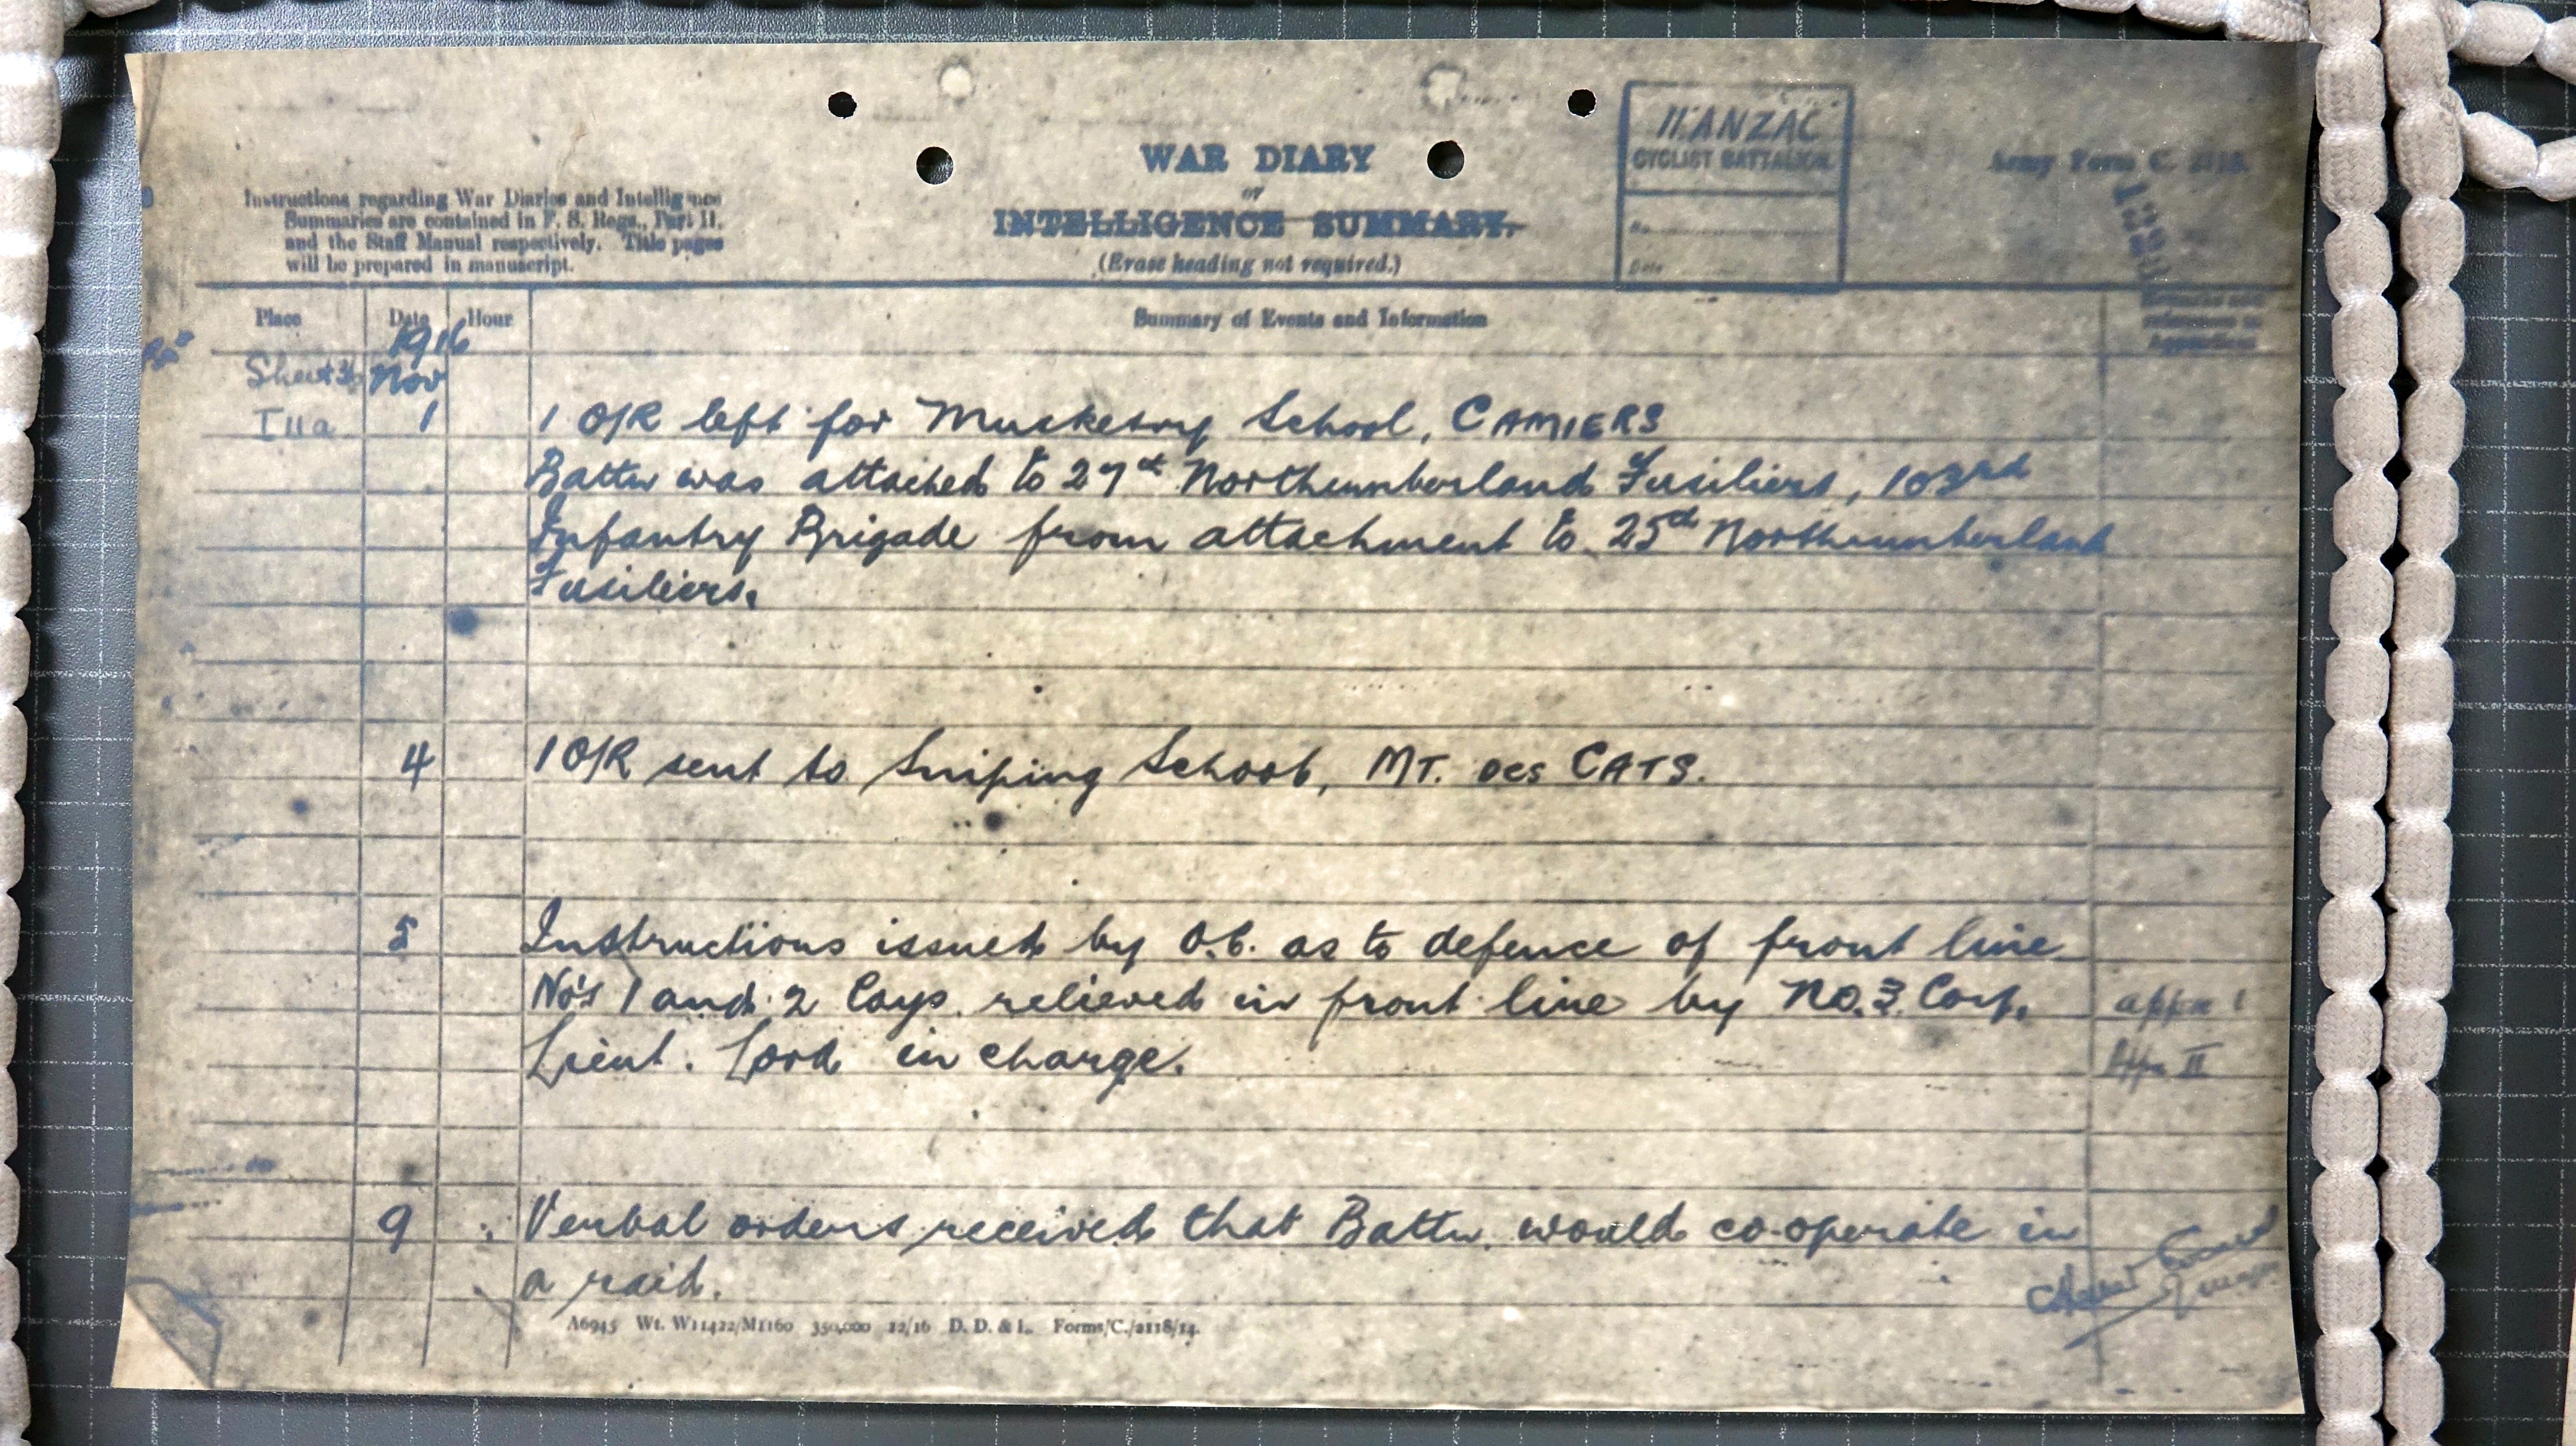 II ANZAC
CYCLIST BATTALION.
No.
Date
WAR DIARY
or
INTELLIGENCE SUMMARY.
(Erase heading not required.)
Army Form C. 2118.
Instructions regarding War Diaries and Intelligence
Summaries are contained in F. S. Regs., Part II.
and the Staff Manual respectively. Title pages
will be prepared in manuscript.
Place Date Hour Summary of Events and Information
1916
Sheet 36 Nov
1 1 O/R left for Musketry School, CAMIERS
Battn was attached to 27th Northumberland Fusiliers, 103rd
Infantry Brigade from attachment to 25th Northumberland
Fusiliers.
4 1 O/R sent to Sniping School, MT. DES CATS.
5 Instructions issued by O.C. as to defence of front line
No's 1 and 2 Coys. relieved in front line by NO. 3. Coy. appx 1
Lieut. Lord in charge. Appx II
9 Verbal orders received that Battn. would co-operate in
a raid.
A6945 Wt. W11422/M1160 350,000 12/16 D. D. & L. Forms/C./2118/14.